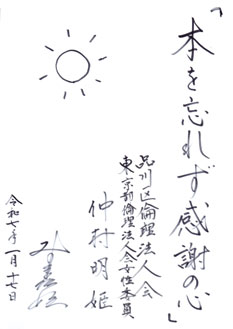 「本を忘れず感謝の心」
品川区倫理法人会
東京都倫理法人会女性委員
仲村明姫
令和七年一月十七日